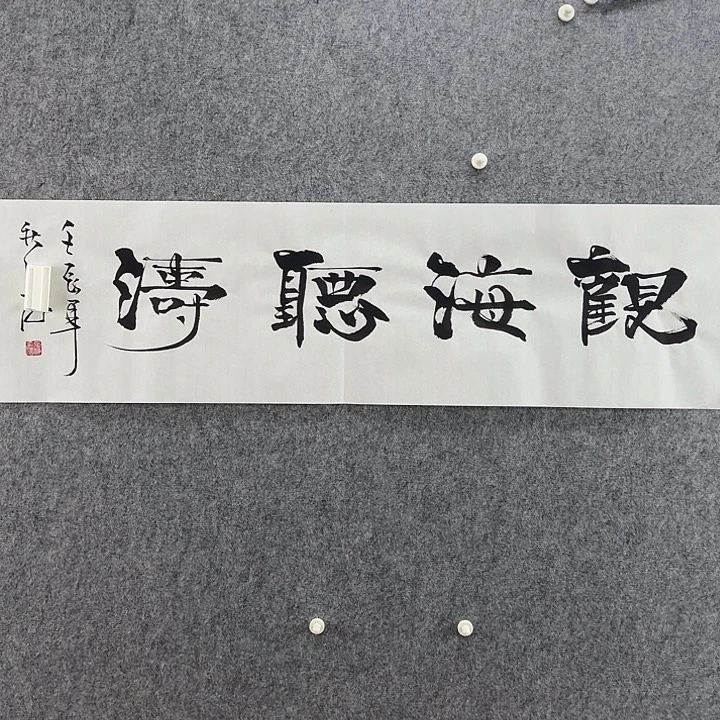 觀海聽濤
壬辰年
秋